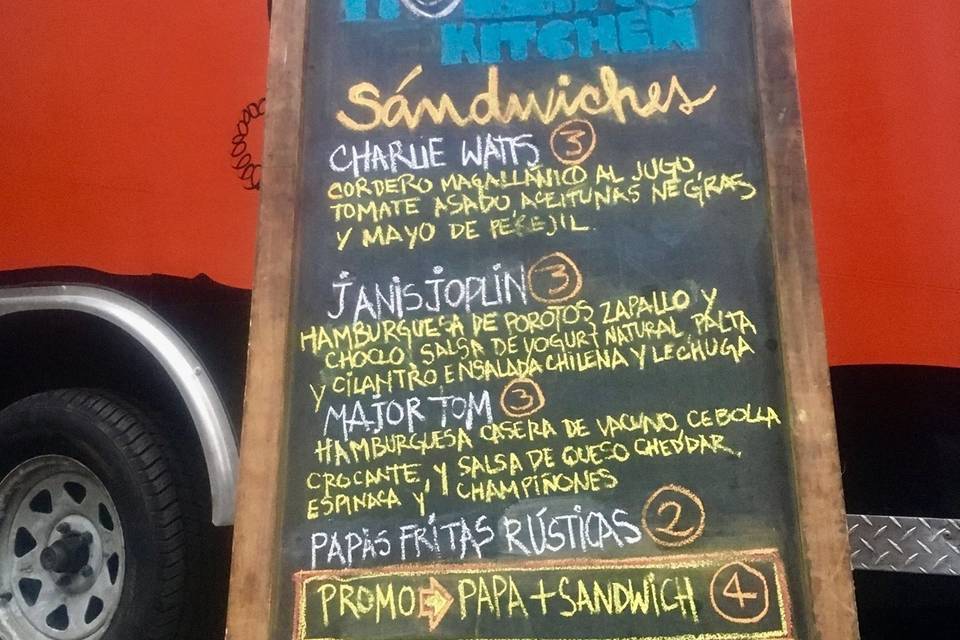 KITCHEN
Sándwiches
CHARLIE WATTS 3
CORDERO MAGALLÁNICO AL JUGO
TOMATE ASADO ACEITUNAS NEGRAS
Y MAYO DE PEREJIL.
JANIS JOPLIN 3
HAMBURGUESA DE POROTOS ZAPALLO Y
CHOCLO, SALSA DE YOGURT NATURAL, PALTA
Y CILANTRO ENSALADA CHILENA Y LECHUGA
MAJOR TOM 3
HAMBURGUESA CASERA DE VACUNO, CEBOLLA
CROCANTE, Y SALSA DE QUESO CHEDDAR,
ESPINACA Y CHAMPIÑONES
PAPAS FRITAS RÚSTICAS 2
PROMO PAPA + SANDWICH 4